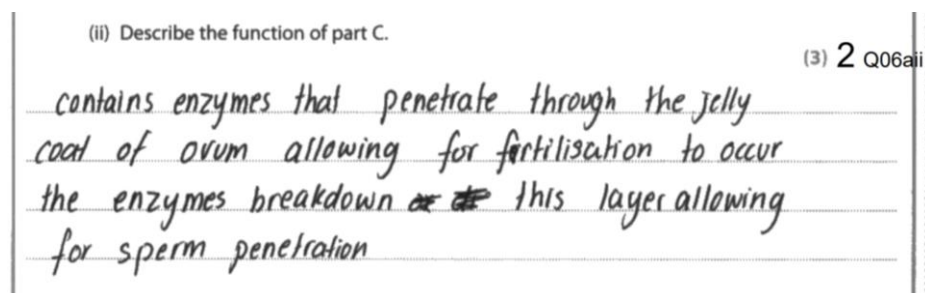 (ii) Describe the function of part C.
(3) 2 Q06aii
contains enzymes that penetrate through the jelly
coat of ovum allowing for fertilisation to occur
the enzymes breakdown this layer allowing
for sperm penetration